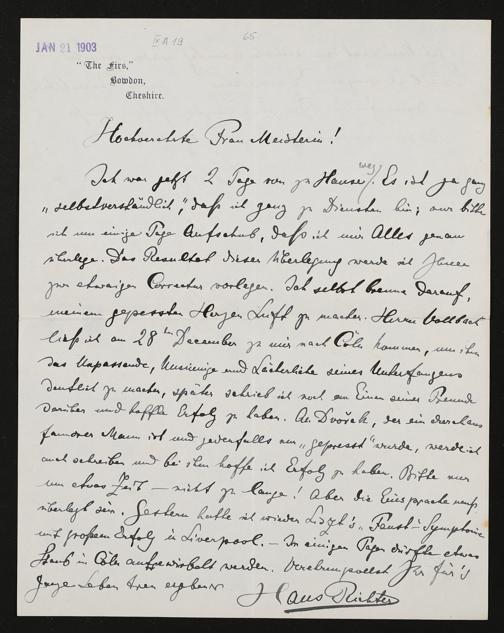 JAN 21 1903
IV A 19
65
"The Firs,"
Bowdon,
Cheshire.
Hochverehrte Frau Meisterin!
Ich war jetzt 2 Tage von zu Hause weg. Es ist ja ganz
„selbstverständlich", daß ich ganz zu Diensten bin; nur bitte
ich um einige Tage Aufschub, daß ich mir Alles genau
überlege. Das Resultat dieser Überlegung werde ich Ihnen
zur etwaigen Correctur vorlegen. Ich selbst brenne darauf,
meinem gepressten Herzen Luft zu machen. Herrn Vollbach
ließ ich am 28ten December zu mir nach Cöln kommen, um ihm
das Unpassende, Unsinnige und Lächerliche seines Unterfangens
deutlich zu machen, später schrieb ich noch an Einen seiner Freunde
darüber und hoffte Erfolg zu haben. An Dvořák, der ein durchaus
famoser Mann ist und jedenfalls nur „gepresst" wurde, werde ich
auch schreiben und bei ihm hoffe ich Erfolg zu haben. Bitte nur
um etwas Zeit — nicht zu lange! Aber die Einsprache muß
überlegt sein. Gestern hatte ich wieder Liszt's „Faust-Symphonie
mit großem Erfolg in Liverpool. — In einigen Tagen dürfte etwas
Staub in Cöln aufgewirbelt werden. Verehrungsvollst Ihr für's
ganze Leben treu ergebener
Hans Richter